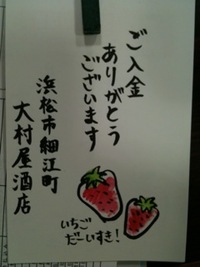 ご入金
ありがとう
ございます
浜松市細江町
大村屋酒店
いちご
だーいすき!